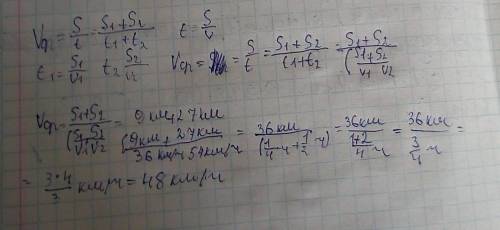 Vср = S/t = (S1+S2)/(t1+t2)   t = S/v
t1 = S1/v1   t2 S2/v2   Vср = S/t = (S1+S2)/(t1+t2) = (S1+S2)/(S1/v1+S2/v2)
Vср = (S1+S2)/(S1/v1+S2/v2) = (9км+27км)/(9км/36км/ч+27км/54км/ч) = 36км/(1/4 ч+1/2 ч) = 36км/((1+2)/4 ч) = 36км/(3/4 ч) =
= 3*4/3 км/ч = 48км/ч